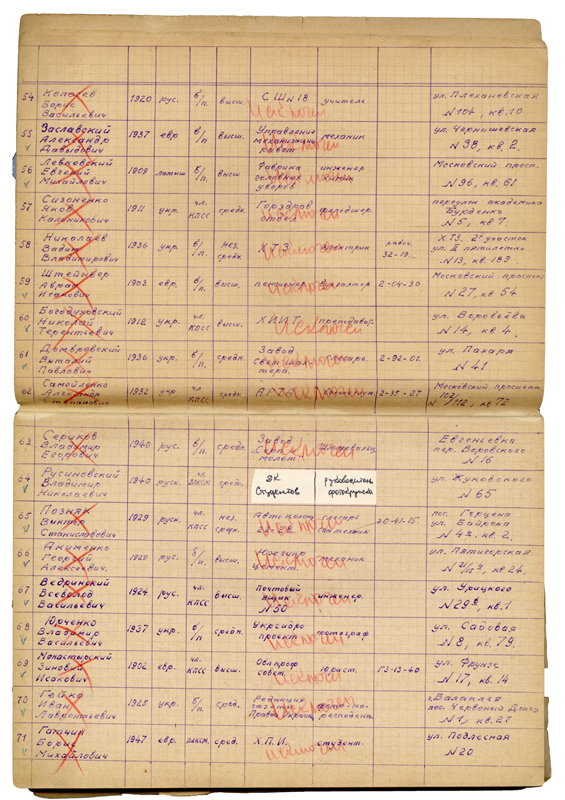 54 Борис Васильевич 1920 рус. б/п. высш. СШ№18 учитель ул. Плехановская №104, кв.10
исключен
55 Заславский Александр Давыдович 1937 евр б/п. высш. Управление механизации работ механик ул. Чернышевская №38, кв.2.
56 Левковский Евгений Михайлович 1909 латыш б/п. высш Фабрика головных уборов инженер химик Московский просп. №96, кв.61
57 Сизоненко Яков Калиникович 1911 укр. чл. КПСС средн. Горздрав отдел фельдшер. переулок академика Бурденко №5, кв 7
исключен
58 Николаев Вадим Владимирович 1936 укр. б/п. нез. средн. ХТЗ электрик рабоч. 32-19 ХТЗ, 2й участок ул. II пятилетки №13, кв.189
исключен
59 Штейнвер Абрам Исакович 1903 евр. б/п. высш. пенсионер бухгалтер 2-04-30 Московский проспект №27, кв 54
60 Богодуховский Николай Терентьевич 1912 укр. чл. КПСС высш. ХИИТ преподават. ул. Воробьева №14, кв 4.
исключен
61 Виталий Павлович 1936 укр. б/п. средн. Завод слесарь. 2-92-01. ул. Пахаря №41
исключен
62 Самойленко Александр Степанович 1932 укр чл. КПСС средн 2-35-27 Московский проспект кв 72
63 Сериков Владимир Егорович 1940 рус. б/п. средн. Завод Серп молот Евгеньевка пер. Боровского №16
исключен
64 Русиновский Владимир Николаевич 1940 русск. средн. ДК Студентов руководитель фотокружка ул. Жуковского №65
65 Позняк Виктор Станиславович 1929 русск. чл. КПСС нез. средн. слесарь сантехник 20-41-15. пос. Герцена ул. Байрона №43, кв.2,
исключен
66 Акименко Георгий Алексеевич 1929 рус. б/п. высш. механик ул. Пятигорская кв 24.
исключен
67 Ведринский Всеволод Васильевич 1924 рус. чл. КПСС высш. Почтовый ящик №50 инженер. ул. Урицкого кв.1
исключен
68 Юрченко Владимир Васильевич 1937 укр. б/п средн. Укргипро проект фотограф ул. Садовая №8, кв.79.
69 Монастырский Зиновий Исакович 1902 евр. чл. КПСС высш. Облпроф совет. юрист. 73-13-40 ул. Фрунзе №17, кв.14
исключен
70 Гейко Иван Лаврентьевич 1925 укр. б/п. сред. Редакция фото-ко- респондент г.Балаклея пос. Червоный Донец №1, кв.27
исключен
71 Борис Михайлович 1947 евр. сред. Х.П.И. студент. ул. Подлесная №20
исключен